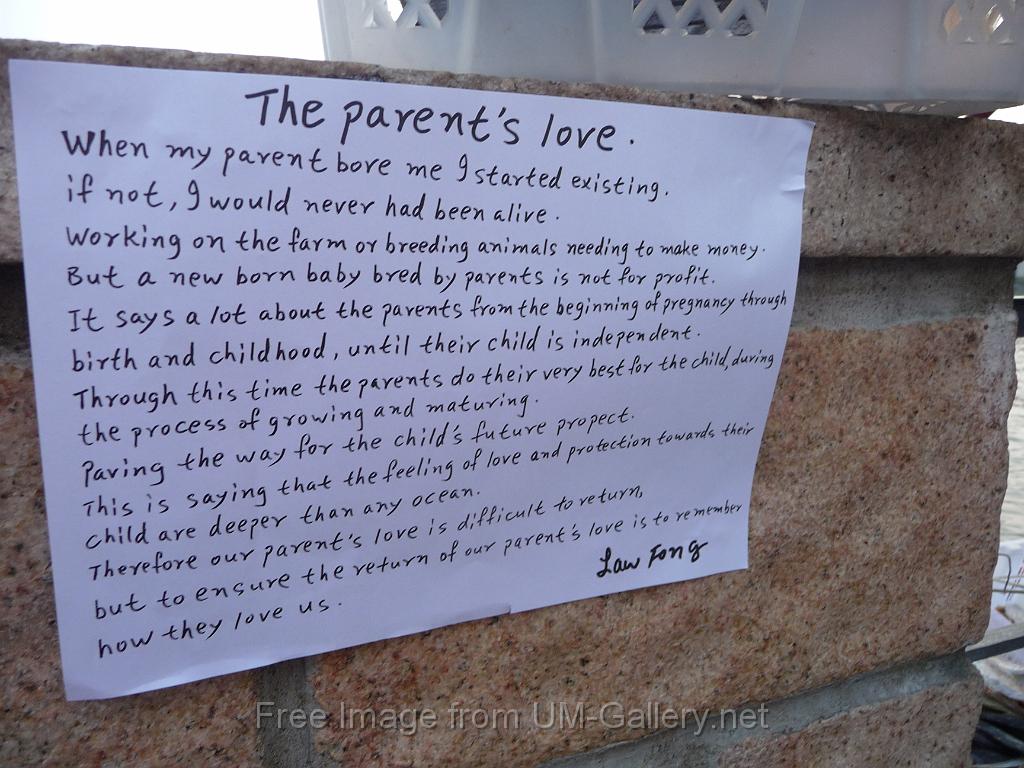 The parent's love.
When my parent bore me I started existing.
if not, I would never had been alive.
Working on the farm or breeding animals needing to make money.
But a new born baby bred by parents is not for profit.
It says a lot about the parents from the beginning of pregnancy through
birth and childhood, until their child is independent.
Through this time the parents do their very best for the child, during
the process of growing and maturing.
Paving the way for the child's future propect.
This is saying that the feeling of love and protection towards their
child are deeper than any ocean.
Therefore our parent's love is difficult to return,
but to ensure the return of our parent's love is to remember
how they love us.
Law Fong
Free Image from UM-Gallery.net